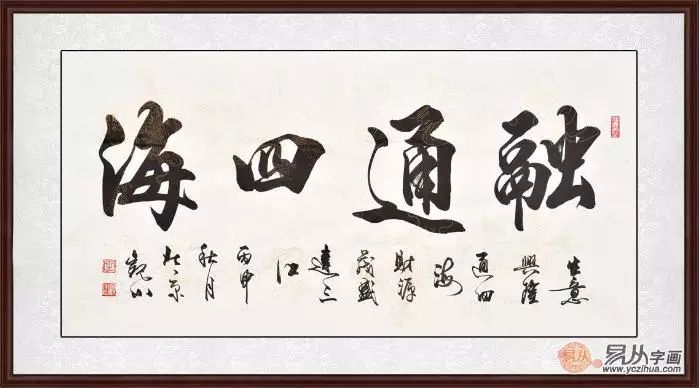 融通四海
生意
興隆
通四
海
財源
茂盛
達三
江
丙申
秋月
京
易从字画
www.yczihua.com